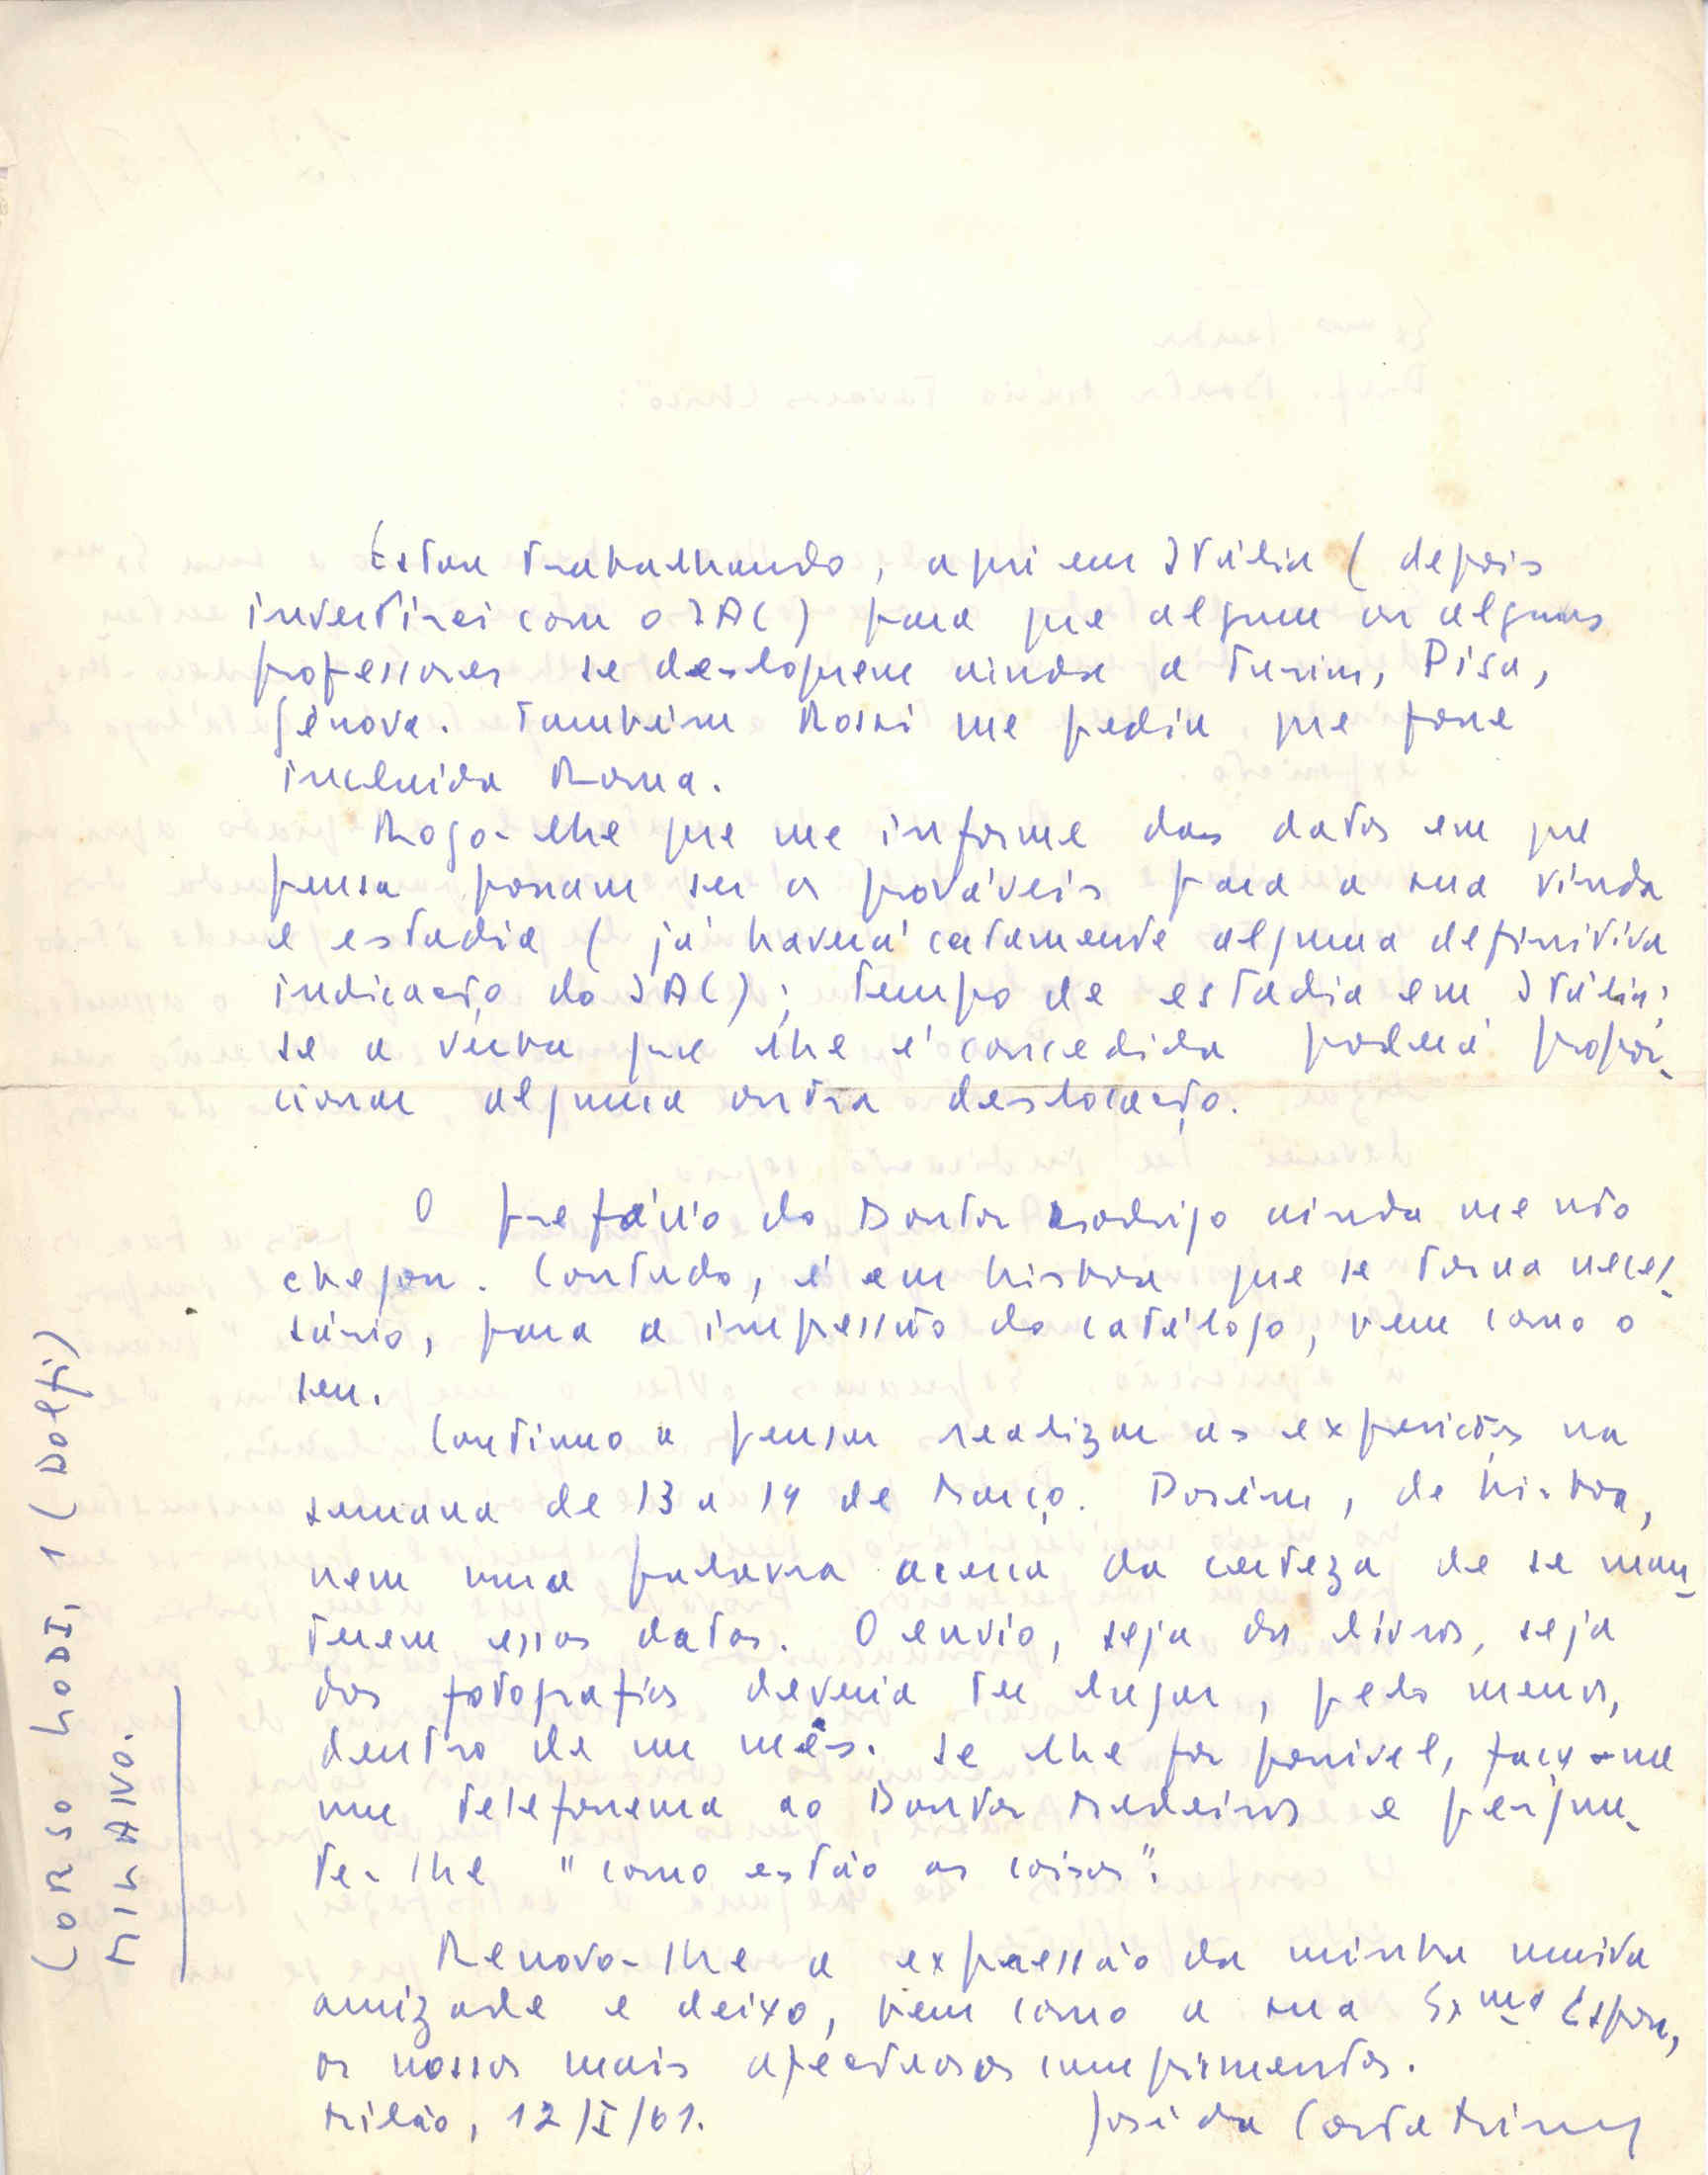 Estou trabalhando, aqui em Itália (depois
invertirei com o IAC) para que algum ou alguns
professores se desloquem ainda a Turim, Pisa,
Génova. Também Rossi me pediu que fosse
incluida Roma.
Rogo-lhe que me informe das datas em que
pensa possam ser as prováveis para a sua vinda
e estadia (já haverá certamente alguma definitiva
indicação do IAC); tempo de estadia em Itália;
se a verba que lhe é concedida poderá propor-
cionar alguma outra deslocação.
O prefácio do Doutor Rodrigo ainda me não
chegou. Contudo, é em Lisboa que se torna neces-
sário, para a impressão do catálogo, bem como o
seu.
Continuo a pensar realizar as exposições na
semana de 13 a 19 de Março. Porém, de Lisboa,
nem uma palavra acerca da certeza de se man-
terem essas datas. O envio, seja dos livros, seja
das fotografias deveria ter lugar, pelo menos,
dentro de um mês. Se lhe for possivel, faça-me
um telefonema ao Doutor Medeiros e pergun-
te-lhe "como estão as coisas".
Renovo-lhe a expressão da minha muita
amizade e deixo, bem como a sua Exma Esposa,
os nossos mais afectuosos cumprimentos.
Milão, 12/I/61.
José da Costa Miranda
CORSO LODI, 1 (Dolfi)
MILANO.